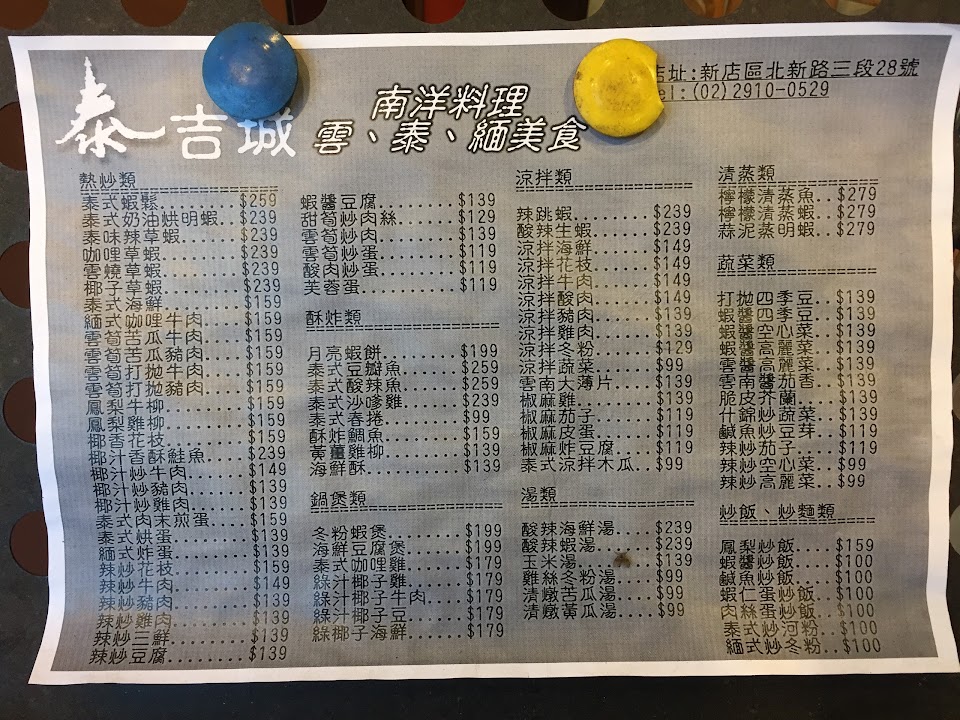 泰吉城
南洋料理
雲、泰、緬美食
店址:新店區北新路三段28號
Tel:(02)2910-0529
熱炒類
泰式蝦鬆.......$259
泰式奶油烘明蝦..$239
泰味辣草蝦......$239
咖哩草蝦........$239
雲燒草蝦........$239
椰子草蝦........$239
泰式海鮮........$159
緬式咖哩牛肉....$159
雲筍苦瓜牛肉....$159
雲筍苦瓜豬肉....$159
雲筍打拋牛肉....$159
雲筍打拋豬肉....$159
鳳梨牛柳........$159
鳳梨雞柳........$159
椰香花枝........$159
椰汁香酥鮭魚....$239
椰汁炒牛肉......$149
椰汁炒豬肉......$139
椰汁炒雞肉......$139
泰式肉末煎蛋....$159
泰式烘蛋........$139
緬式炸蛋........$139
辣炒花枝........$159
辣炒牛肉........$149
辣炒豬肉........$139
辣炒雞肉........$139
辣炒三鮮........$139
辣炒豆腐........$139
蝦醬豆腐........$139
甜筍炒肉絲......$129
雲筍炒肉........$139
雲筍炒蛋........$119
酸肉炒蛋........$119
芙蓉蛋..........$119
酥炸類
月亮蝦餅........$199
泰式豆瓣魚......$259
泰式酸辣魚......$259
泰式沙嗲雞......$239
泰式春捲........$99
酥炸鯛魚........$159
黃薑雞柳........$139
海鮮酥..........$139
鍋煲類
冬粉蝦煲........$199
海鮮豆腐煲......$199
泰式咖哩雞......$179
綠汁椰子雞......$179
綠汁椰子牛肉....$179
綠汁椰子豆......$179
綠椰子海鮮......$179
涼拌類
辣跳蝦..........$239
酸辣生蝦........$239
涼拌海鮮........$149
涼拌花枝........$149
涼拌牛肉........$149
涼拌酸肉........$149
涼拌豬肉........$139
涼拌雞肉........$139
涼拌冬粉........$129
涼拌蔬菜........$99
雲南大薄片......$139
椒麻雞..........$139
椒麻茄子........$119
椒麻皮蛋........$119
椒麻炸豆腐......$119
泰式涼拌木瓜..$99
湯類
酸辣海鮮湯....$239
酸辣蝦湯......$239
玉米湯........$139
雞絲冬粉湯....$99
清燉苦瓜湯....$99
清燉黃瓜湯....$99
清蒸類
檸檬清蒸魚..$279
檸檬清蒸蝦..$279
蒜泥蒸明蝦..$279
蔬菜類
打拋四季豆..$139
蝦醬四季豆..$139
蝦醬空心菜..$139
蝦醬高麗菜..$139
雲醬高麗菜..$139
雲南醬茄香..$139
脆皮芥蘭....$139
什錦炒蔬菜..$139
鹹魚炒豆芽..$119
辣炒茄子....$119
辣炒空心菜..$99
辣炒高麗菜..$99
炒飯、炒麵類
鳳梨炒飯....$159
蝦醬炒飯....$100
鹹魚炒飯....$100
蝦仁蛋炒飯..$100
肉絲蛋炒飯..$100
泰式炒河粉..$100
緬式炒冬粉..$100